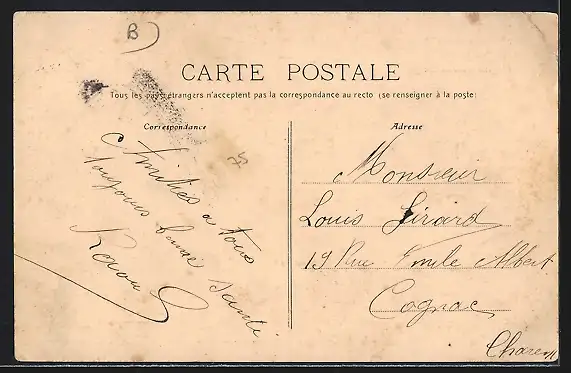 B)
CARTE POSTALE
Tous les pays étrangers n'acceptent pas la correspondance au recto (se renseigner à la poste)
Correspondance
Adresse
75
Amitiés a tous
toujours bonne santé
Raoul
Monsieur
Louis Girard
19 Rue Emile Albert
Cognac
Charen